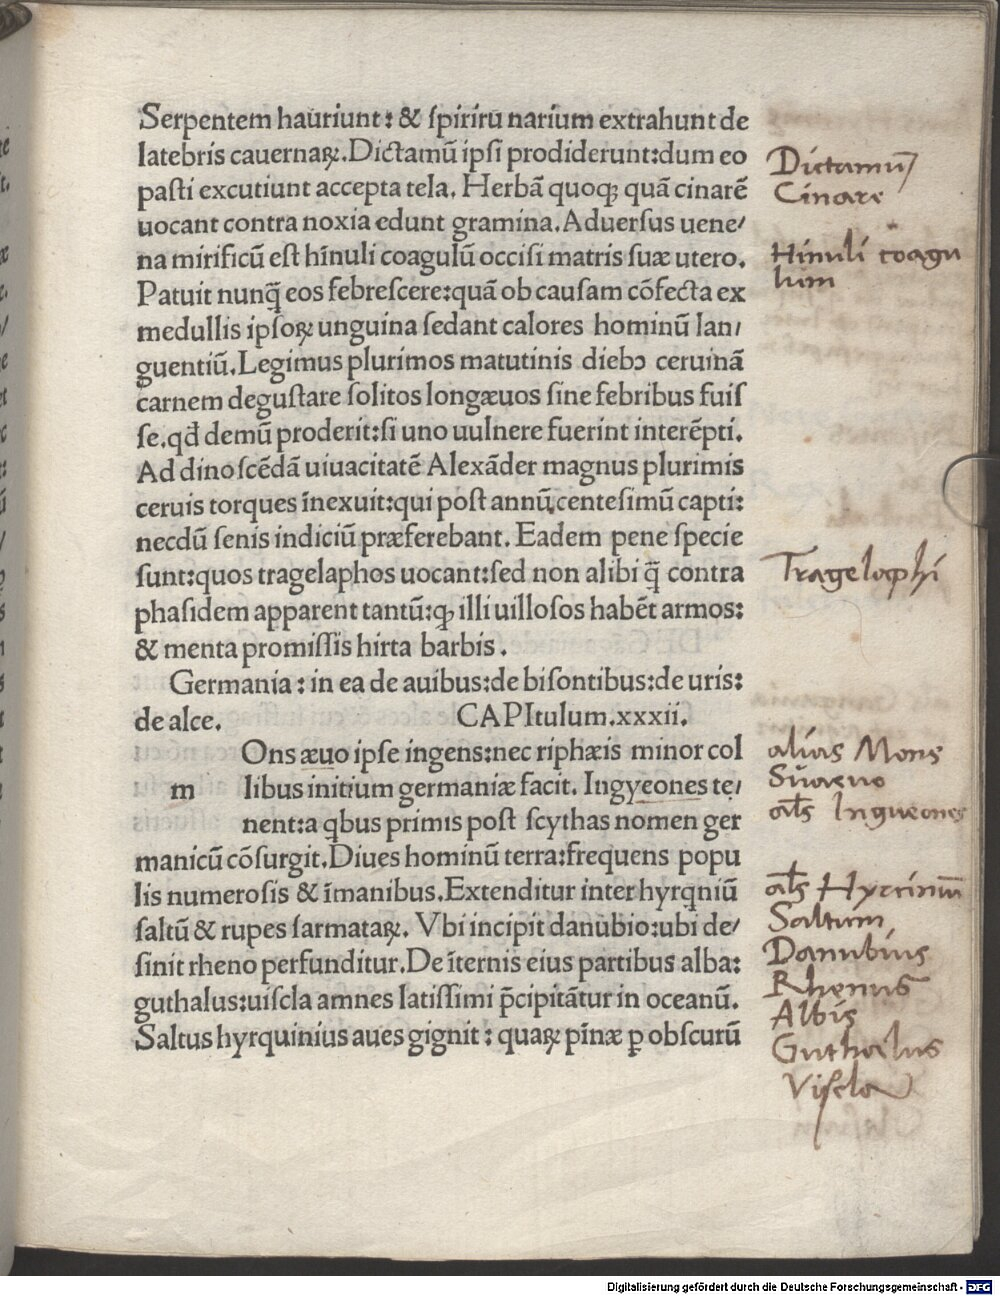 Serpentem hauriunt: & ſpirirū narium extrahunt de
latebris cauernaꝝ. Dictamū ipſi prodiderunt: dum eo
paſti excutiunt accepta tela. Herbā quoqꝫ quā cinarē
uocant contra noxia edunt gramina. Aduerſus uene/
na mirificū eſt hīnuli coagulū occiſi matris ſuæ utero.
Patuit nunq̄ eos febreſcere: quā ob cauſam cōfecta ex
medullis ipſoꝝ unguina ſedant calores hominū lan/
guentiū. Legimus plurimos matutinis diebↄ ceruinā
carnem deguſtare ſolitos longæuos ſine febribus fuiſ
ſe. qđ demū proderit: ſi uno uulnere fuerint interēpti.
Ad dinoſcēdā uiuacitatē Alexāder magnus plurimis
ceruis torques īnexuit: qui poſt annū centeſimū capti:
necdū ſenis indiciū præferebant. Eadem pene ſpecie
ſunt: quos tragelaphos uocant: ſed non alibi q̄ contra
phaſidem apparent tantū: qꝫ illi uilloſos habēt armos:
& menta promiſſis hirta barbis.
Germania: in ea de auibus: de biſontibus: de uris:
de alce. CAPItulum. xxxii.
Ons æuo ipſe ingens: nec riphæis minor col
m libus initium germaniæ facit. Ingyeones te/
nent: a qbus primis poſt ſcythas nomen ger
manicū cōſurgit. Diues hominū terra: frequens popu
lis numeroſis & īmanibus. Extenditur inter hyrqniū
ſaltū & rupes ſarmataꝝ. Vbi incipit danubio: ubi de/
ſinit rheno perfunditur. De īternis eius partibus alba:
guthalus: uiſcla amnes latiſſimi p̄cipitātur in oceanū.
Saltus hyrquinius aues gignit: quaꝝ pīnæ ꝑ obſcurū
Dictamū
Cinare
Hinuli coagu
lum
Tragelaphi
alias Mons
Suaeuo
als Ingueones
als Hyrcinium
Saltum
Danubius
Rhenus
Albis
Guthalus
Viſcla
Digitalisierung gefördert durch die Deutsche Forschungsgemeinschaft - DFG